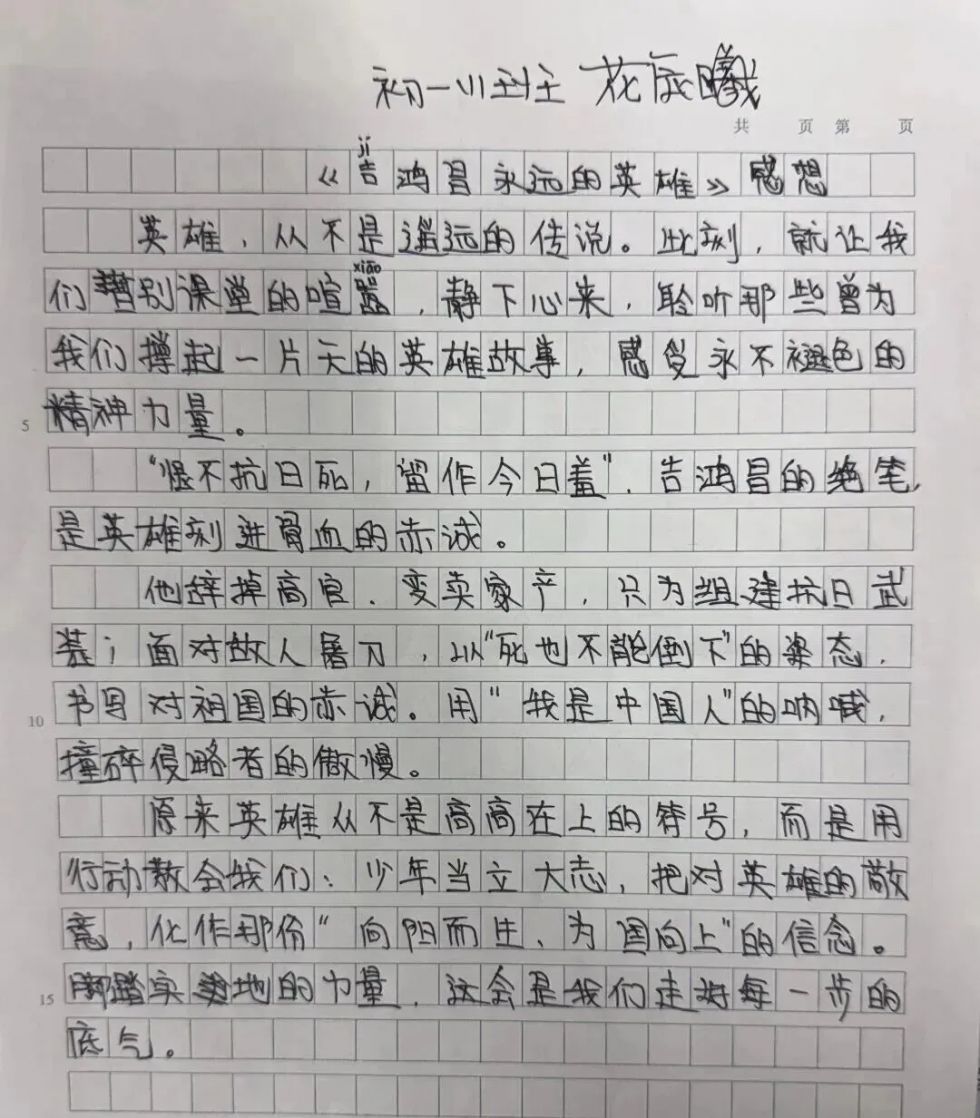 初一(1)班 花辰曦
共 页 第 页
jí
《吉鸿昌永远的英雄》感想
英雄，从不是遥远的传说。此刻，就让我
xiāo
们暂别课堂的喧嚣，静下心来，聆听那些曾为
我们撑起一片天的英雄故事，感受永不褪色的
5 精神力量。
“恨不抗日死，留作今日羞”，吉鸿昌的绝笔，
是英雄刻进骨血的赤诚。
他辞掉高官、变卖家产，只为组建抗日武
装；面对敌人屠刀，以“死也不能倒下”的姿态，
10 书写对祖国的赤诚。用“我是中国人”的呐喊，
撞碎侵略者的傲慢。
原来英雄从不是高高在上的符号，而是用
行动教会我们：少年当立大志，把对英雄的敬
意，化作那份“向阳而生、为国向上”的信念。
15 脚踏实地的力量，这会是我们走好每一步的
底气。